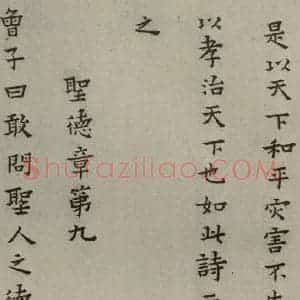 是以天下和平灾害不
以孝治天下也如此詩
之
聖德章第九
曾子曰敢問聖人之德
Shufaziliao.COM